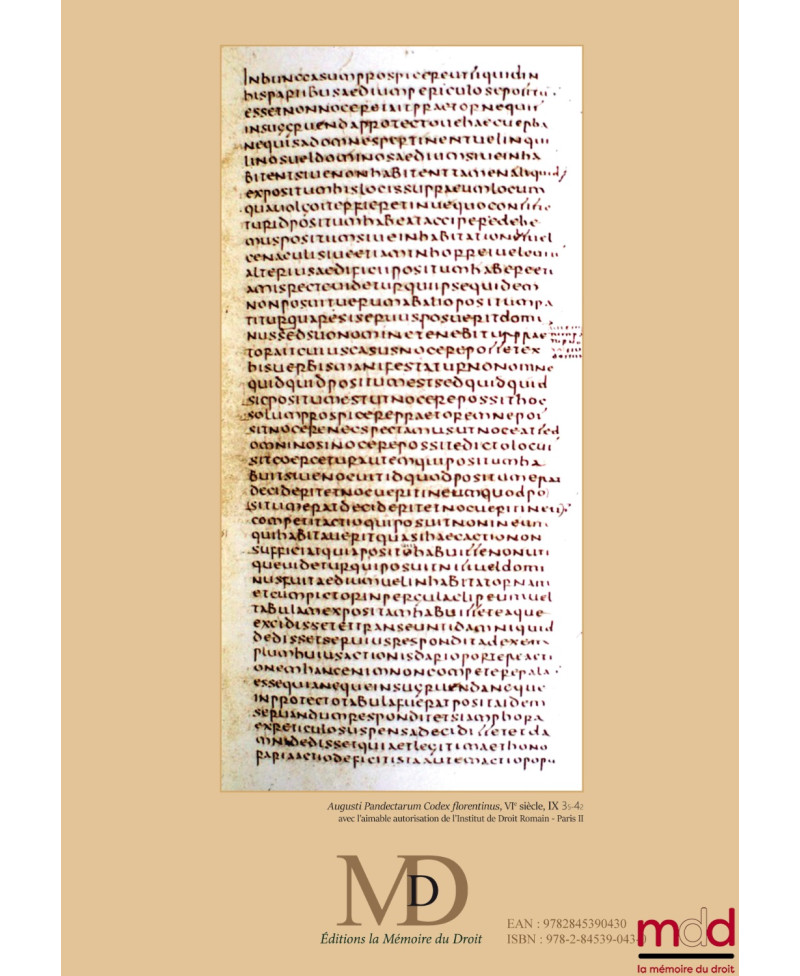 Inhunccasumprospicereutiquidin
hispartibusaediumpericuloseposit
essetnonnoceretaitpraetornequit
insuggruendaprotectouehaecuerba
nequisadomnespertinentuelinqui
linosueldominosaediumsiueinha
bitentsiuenonhabitenttamenaliquid
expositumhislocissupraeumlocum
quauolgoiterfieretinuequoconsiste
turidpositumhabeataccipere debe
muspositumsiueinhabitationeuel
cenaculisiueetiaminhorreiuel
alteriusaedificiipositumhabereeti
amisrecteuideturquiipsequidem
nonposuituerumabaliopositumpa
titurquaresiseruusposueritdomi
nussedsuonominetenebiturprae
toraitcuiuscasusnocerepossetex
hisuerbismanifestaturnonomne
quidquidpositumestsedquidquid
sicpositumestutnocerepossithoc
solumprospicerepraetoremnepos
sitnocerenecspectamusutnoceatsed
omninosinocerepossitedictolocus
sitcoerceturautemquipositumha
buitsiuenocuitidquodpositumerat
decideritetnocueritineumquodpo
situmeratdecideritetnocueritineu
competitactioquiposuitnonineum
quihabitaueritquasihaecactionon
sufficiatquiapositumhabuissenonuti
queuideturquiposuitnisiueldomi
nusfuitaediumuelinhabitatornam
etcumpictorinperculaclipeumuel
tabulamexpositamhabuisseteaque
excidissetettranseuntidamniquid
dedissetseruiusresponditadexem
plumhuiusactionisdarioportereacti
onemhancenimnoncompeterepala
essequianequeinsuggruendaneque
inprotectotabulafueratpositaidem
seruandumresponditetsiamphora
exreticulosuspensadecidissetetda
mnidedissetquiaetlegitimaethono
rariaactiodeficitistaautemactiopopu
Augusti Pandectarum Codex florentinus, VIe siècle, IX 35-42
avec l'aimable autorisation de l'Institut de Droit Romain - Paris II
MDD
Éditions la Mémoire du Droit
EAN : 9782845390430
ISBN : 978-2-84539-043-0
mdd
la mémoire du droit